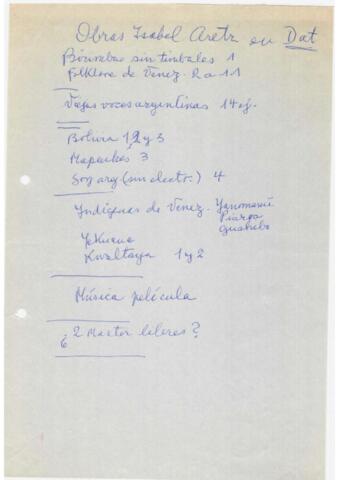 Obras Isabel Aretz en Dat
Birimbao sin timbales 1
Folklore de Venez. 2 a 11
Viejas voces argentinas 14 ej.
Bolivia 1, 2 y 3
Mapuches 3
Soy arg (sin electr.) 4
Indígenas de Venez. Yanomami
Piaroa
Guahibo
Yekuana
Kwaltaya 1 y 2
Música película
¿2 Master liberes?